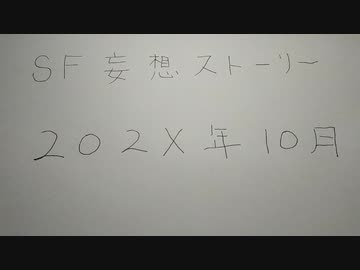 SF妄想ストーリー
202X年10月